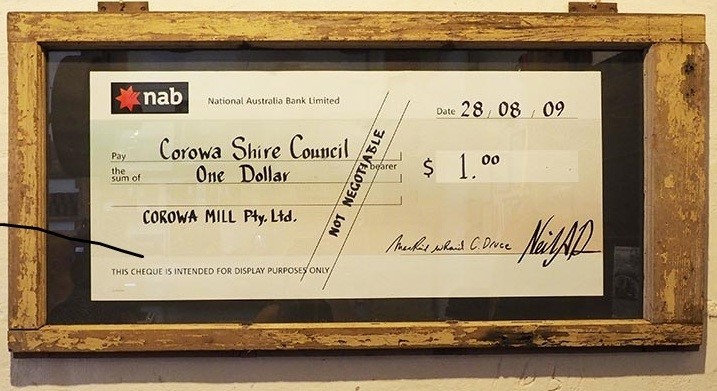 nab
National Australia Bank Limited
Date 28 / 08 / 09
Pay Corowa Shire Council
the sum of One Dollar
bearer
$ 1.00
NOT NEGOTIABLE
COROWA MILL Pty. Ltd.
C. Druce
THIS CHEQUE IS INTENDED FOR DISPLAY PURPOSES ONLY